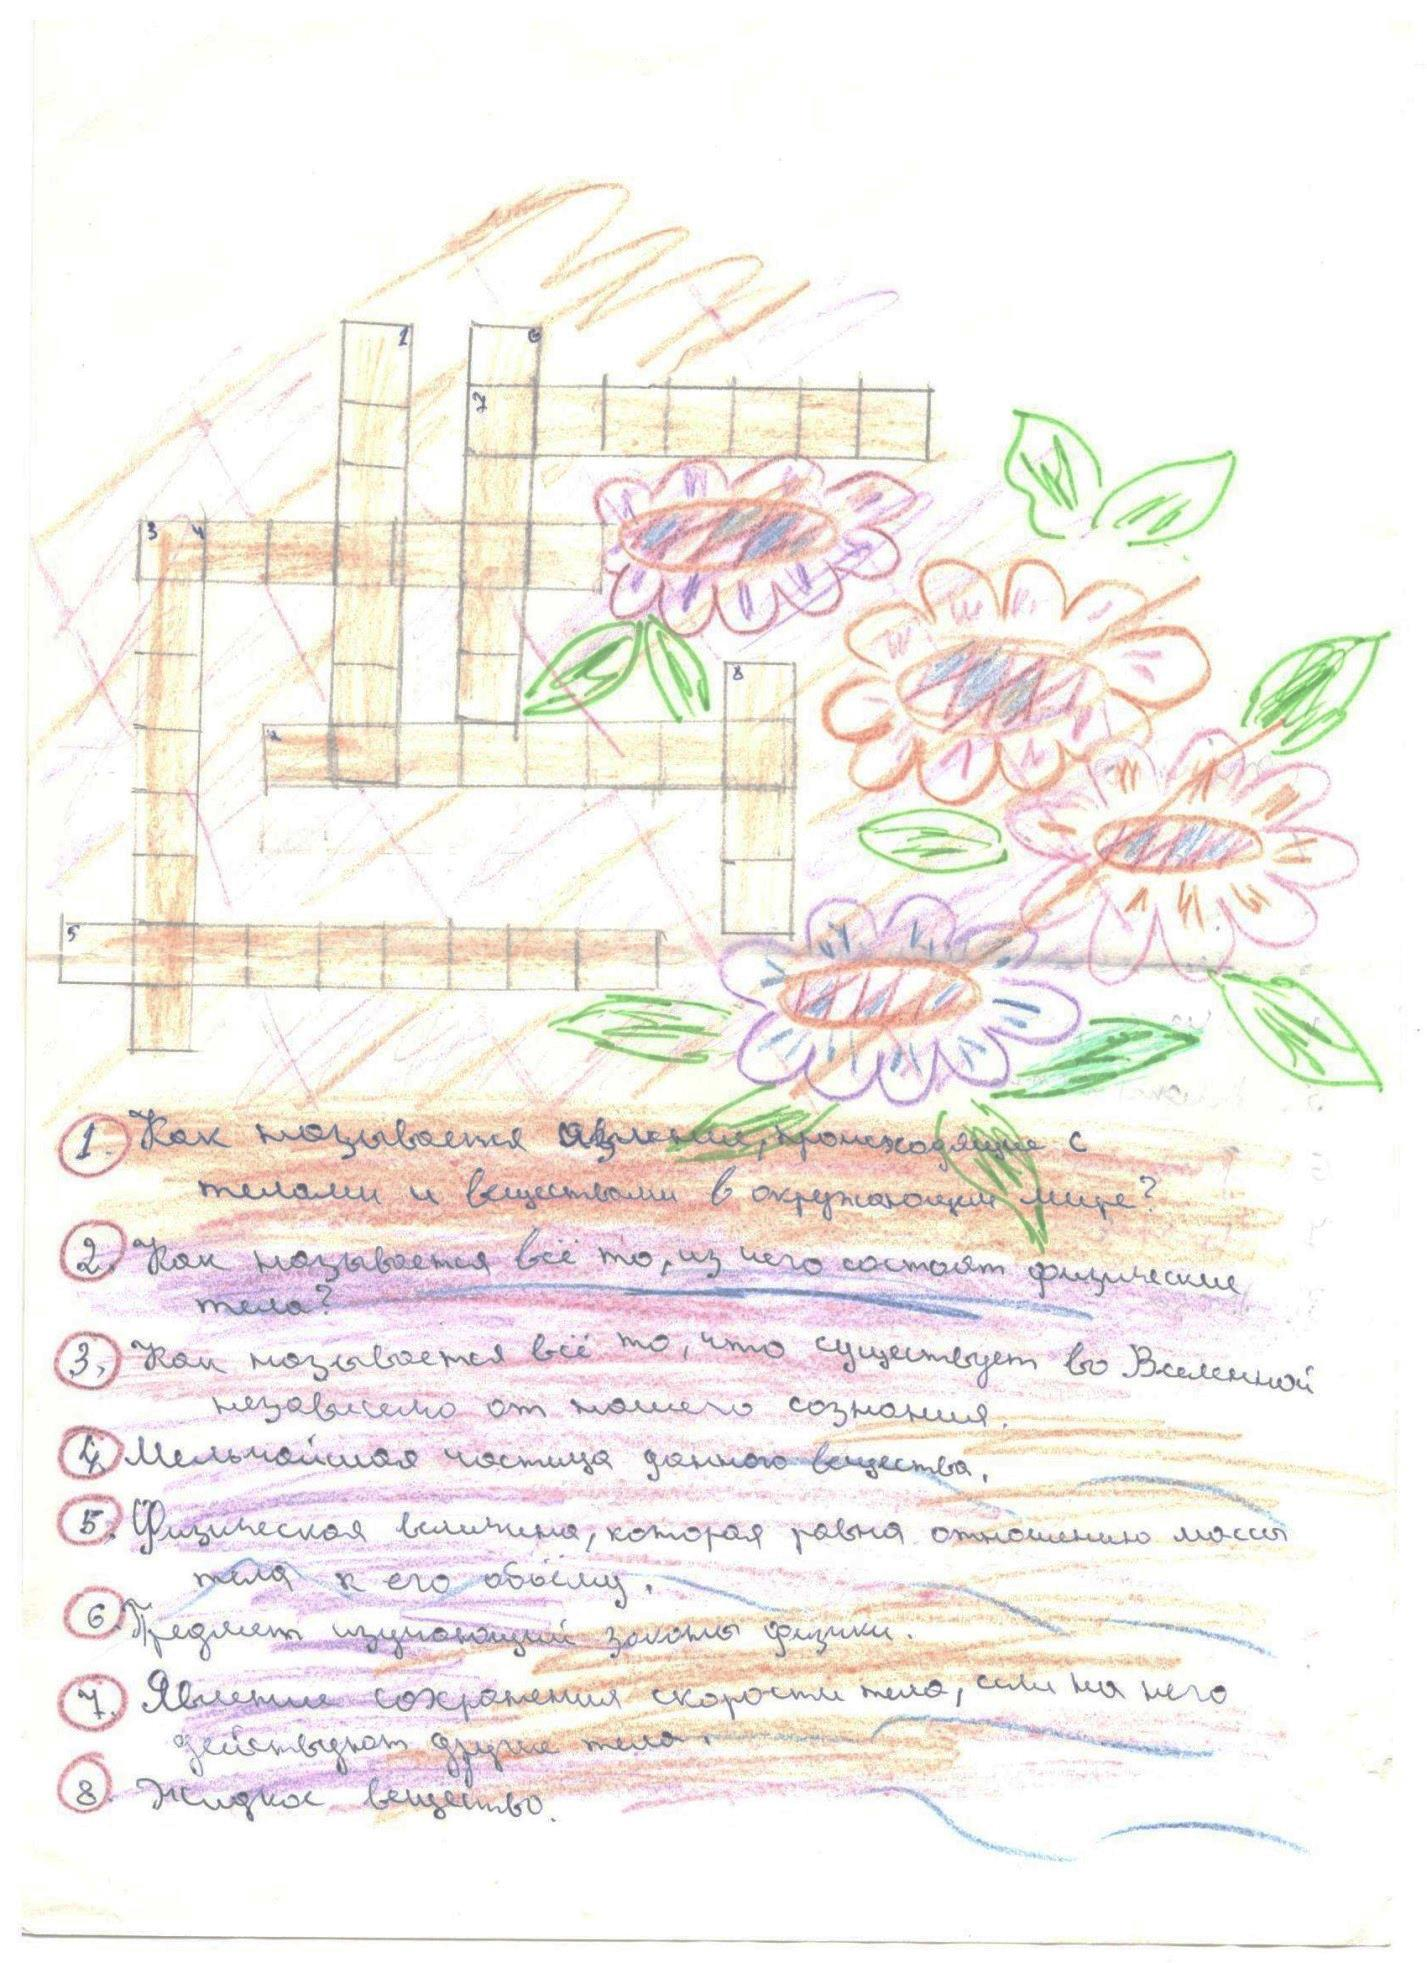 1
6
7
3 4
8
2
5
1. Как называется явления, происходящие с
телами и веществами в окружающем мире?
2. Как называется всё то, из чего состоят физические
тела?
3. Как называется всё то, что существует во Вселенной
независимо от нашего сознания.
4. Мельчайшая частица данного вещества.
5. Физическая величина, которая равна отношению массы
тела к его объёму.
6. Предмет изучающий законы физики.
7. Явление сохранения скорости тела, если на него
действуют другие тела.
8. Жидкое вещество.